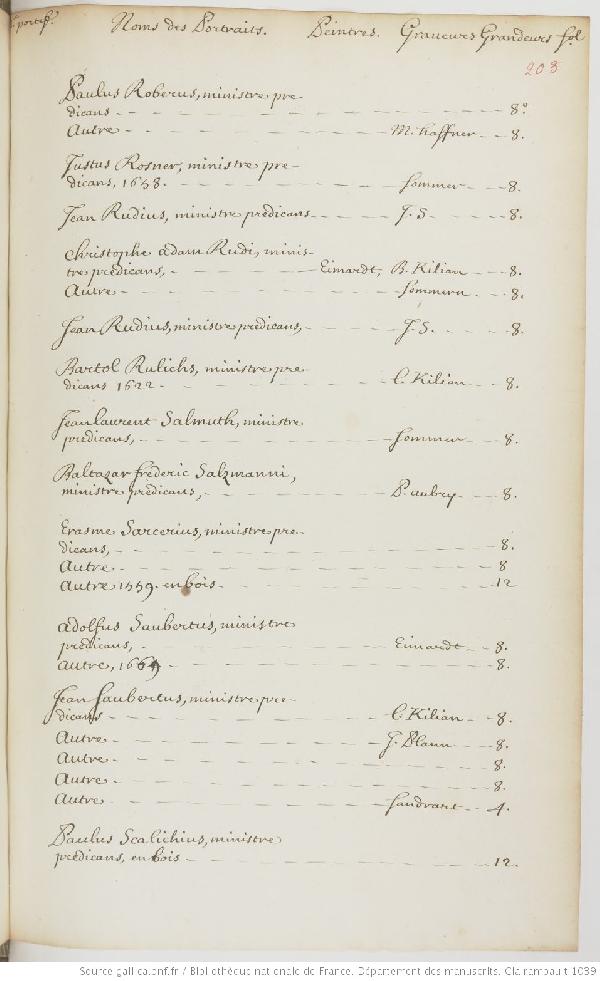 portef. Noms des Portraits. Peintres. Graveurs Grandeurs fol.
203
Paulus Roberus, ministre pre-
dicans - 8°
Autre - M. haffner - 8.
Justus Rosner, ministre pre-
dicans, 1638. - Sommer - 8.
Jean Rudius, ministre prédicans - J. S. - 8.
Christophe Adam Rudi, minis-
tre prédicans, - Eimardt, B. Kilian - 8.
Autre - Sommern - 8.
Jean Rudius, ministre prédicans, - J. S. - 8.
Bartol Rulichs, ministre pre-
dicans 1622 - C. Kilian - 8.
Jean laurent Salmuth, ministre
prédicans, - Sommer - 8.
Baltazar fréderic Salzmanni,
ministre prédicans, - P. aubry - 8.
Erasme Sarcerius, ministre pre-
dicans, - 8.
Autre - 8
Autre 1559. en bois - 12
Adolfus Saubertus, ministre
prédicans, - Eimardt - 8.
Autre, 1669 - 8.
Jean Saubertus, ministre pre-
dicans - C. Kilian - 8.
Autre - J. Blann - 8.
Autre - 8.
Autre - 8.
Autre - Sandrart - 4.
Paulus Scalichius, ministre
prédicans, en bois - 12
Source gallica.bnf.fr / Bibliothèque nationale de France. Département des manuscrits. Clairambault 1039